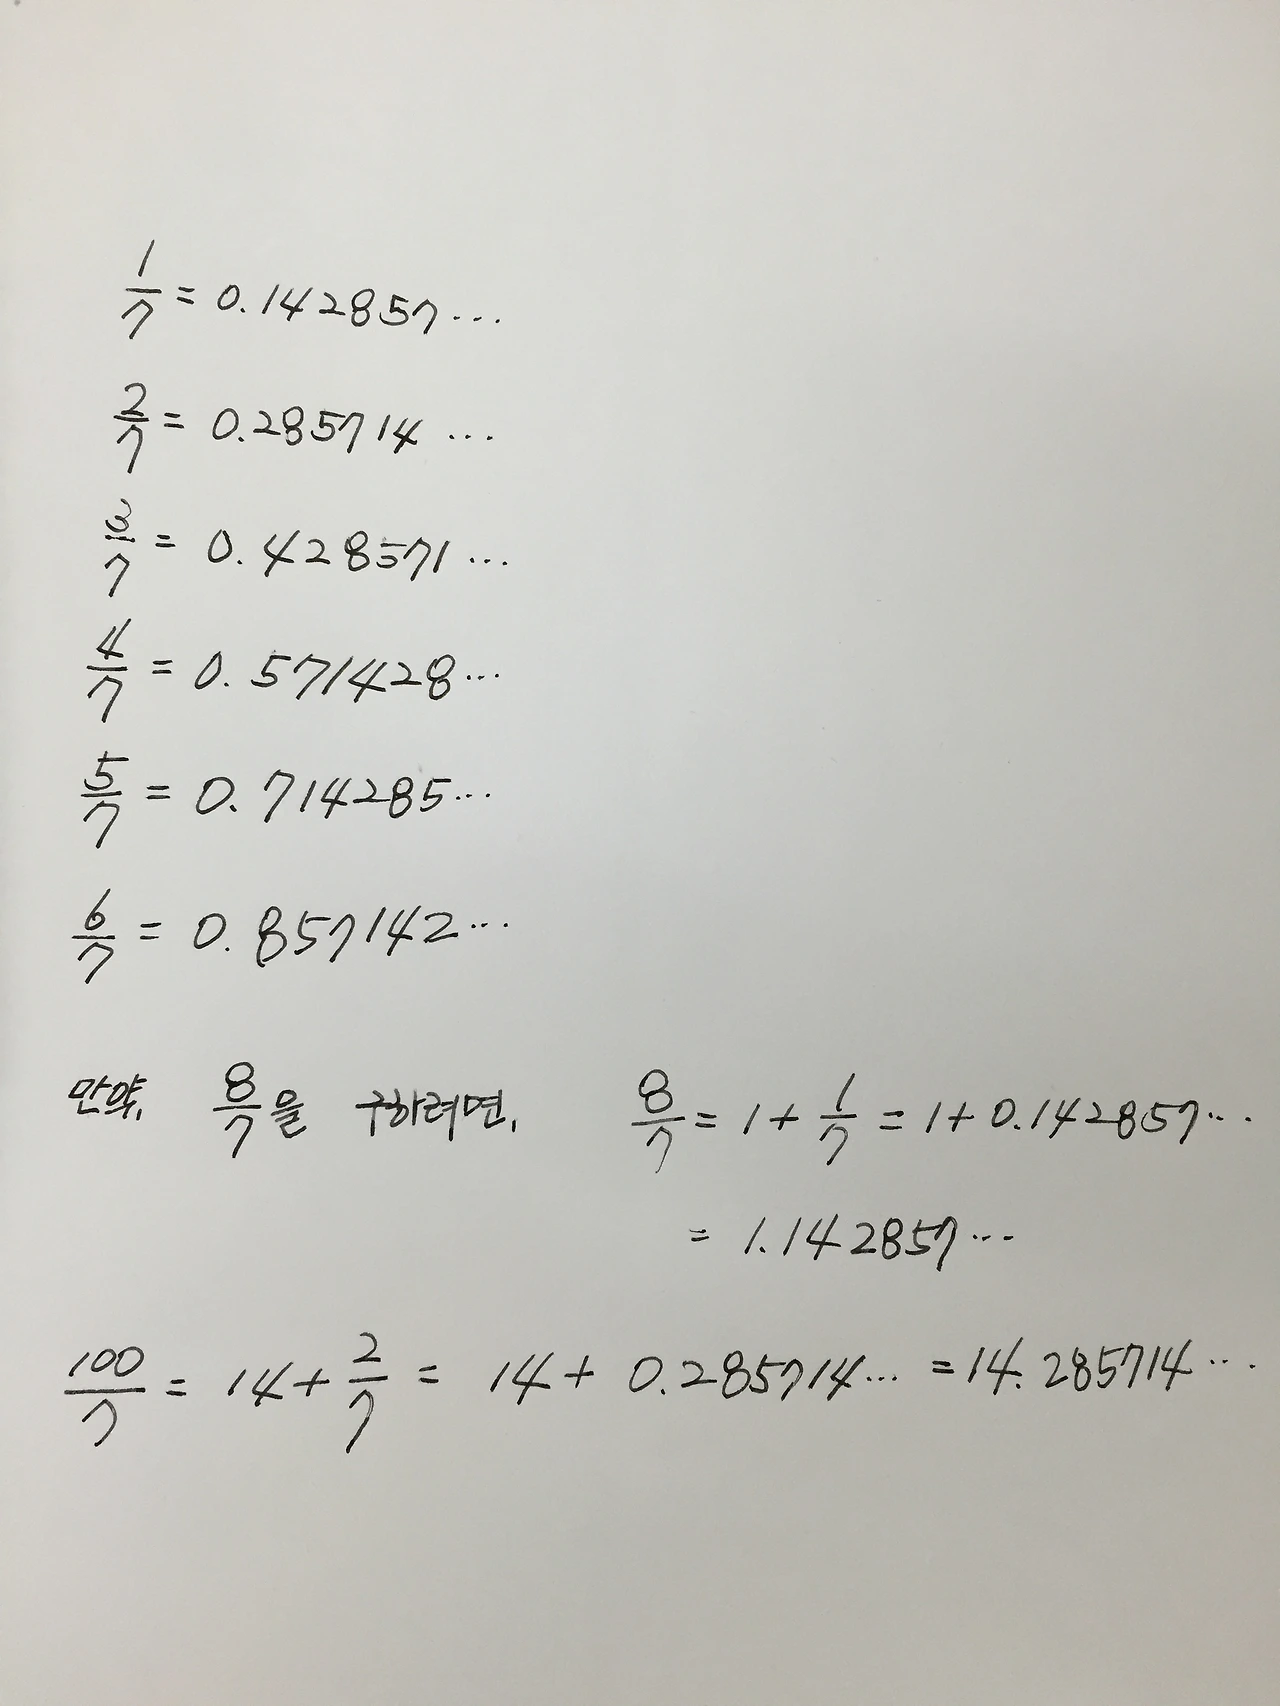 1/7 = 0.142857...
2/7 = 0.285714 ...
3/7 = 0.428571 ...
4/7 = 0.571428...
5/7 = 0.714285...
6/7 = 0.857142...
만약, 8/7을 구하려면, 8/7 = 1 + 1/7 = 1 + 0.142857...
= 1.142857...
100/7 = 14 + 2/7 = 14 + 0.285714... = 14.285714...